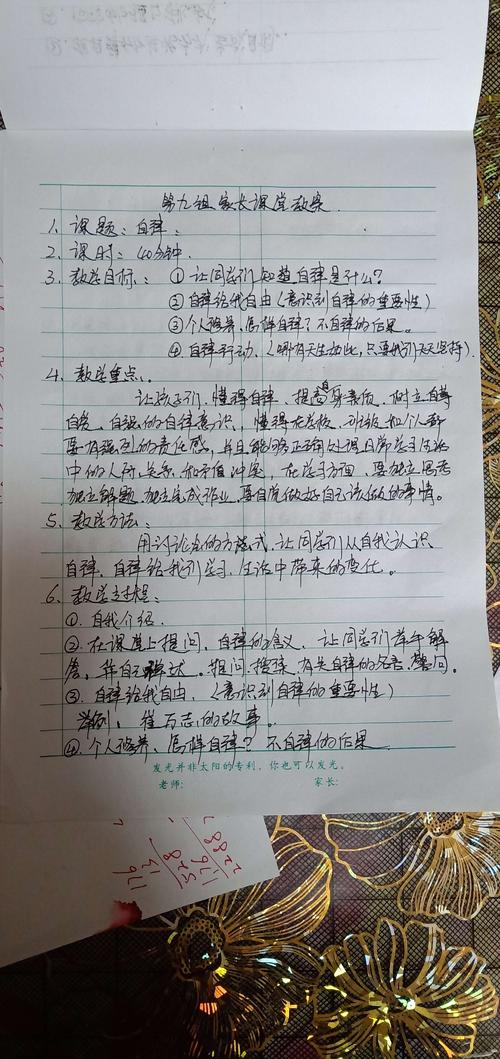 第九组家长课堂教案
1. 课题：自律。
2. 课时：40分钟.
3. 教学目标： ① 让同学们知道自律是什么？
② 自律给我自由（意识到自律的重要性）
③ 个人修养、怎样自律？不自律的后果。
④. 自律行动、（哪有天生如此，只要我们天天坚持）.
4. 教学重点：
让孩子们、懂得自律、提高自身素质、树立自尊
自爱、自强的自律意识，懂得在学校、班级和个人都
要有强烈的责任感，并且能够正确处理日常学习生活
中的人际关系和矛盾冲突，在学习方面，要独立思考
独立解题、独立完成作业，要自觉做好自己该做的事情。
5. 教学方法：
用讨论式的方式，让同学们从自我认识
自律、自律给我们学习、生活中带来的变化。
6. 教学过程：
①. 自我介绍.
②. 在课堂上提问、自律的含义、让同学们举手解
答，并自己表达. 提问.接龙. 有关自律的名言.警句.
③. 自律给我自由、（意识到自律的重要性）
举例、崔万志的故事。
④. 个人修养、怎样自律？不自律的后果
发光并非太阳的专利，你也可以发光。
老师： 家长：
176